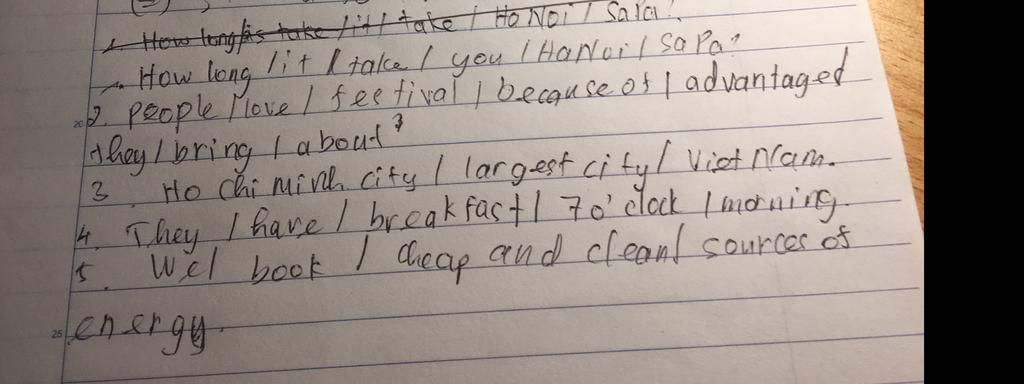 1. How long / is take / it / take / Ha Noi / SaPa?
1. How long / it / take / you / Ha Noi / Sa Pa?
2. people / love / festival / because of / advantaged
they / bring / about?
3. Ho Chi minh city / largest city / Viet Nam.
4. They / have / breakfast / 7 o'clock / morning.
5. We / book / cheap and clean / sources of
energy.